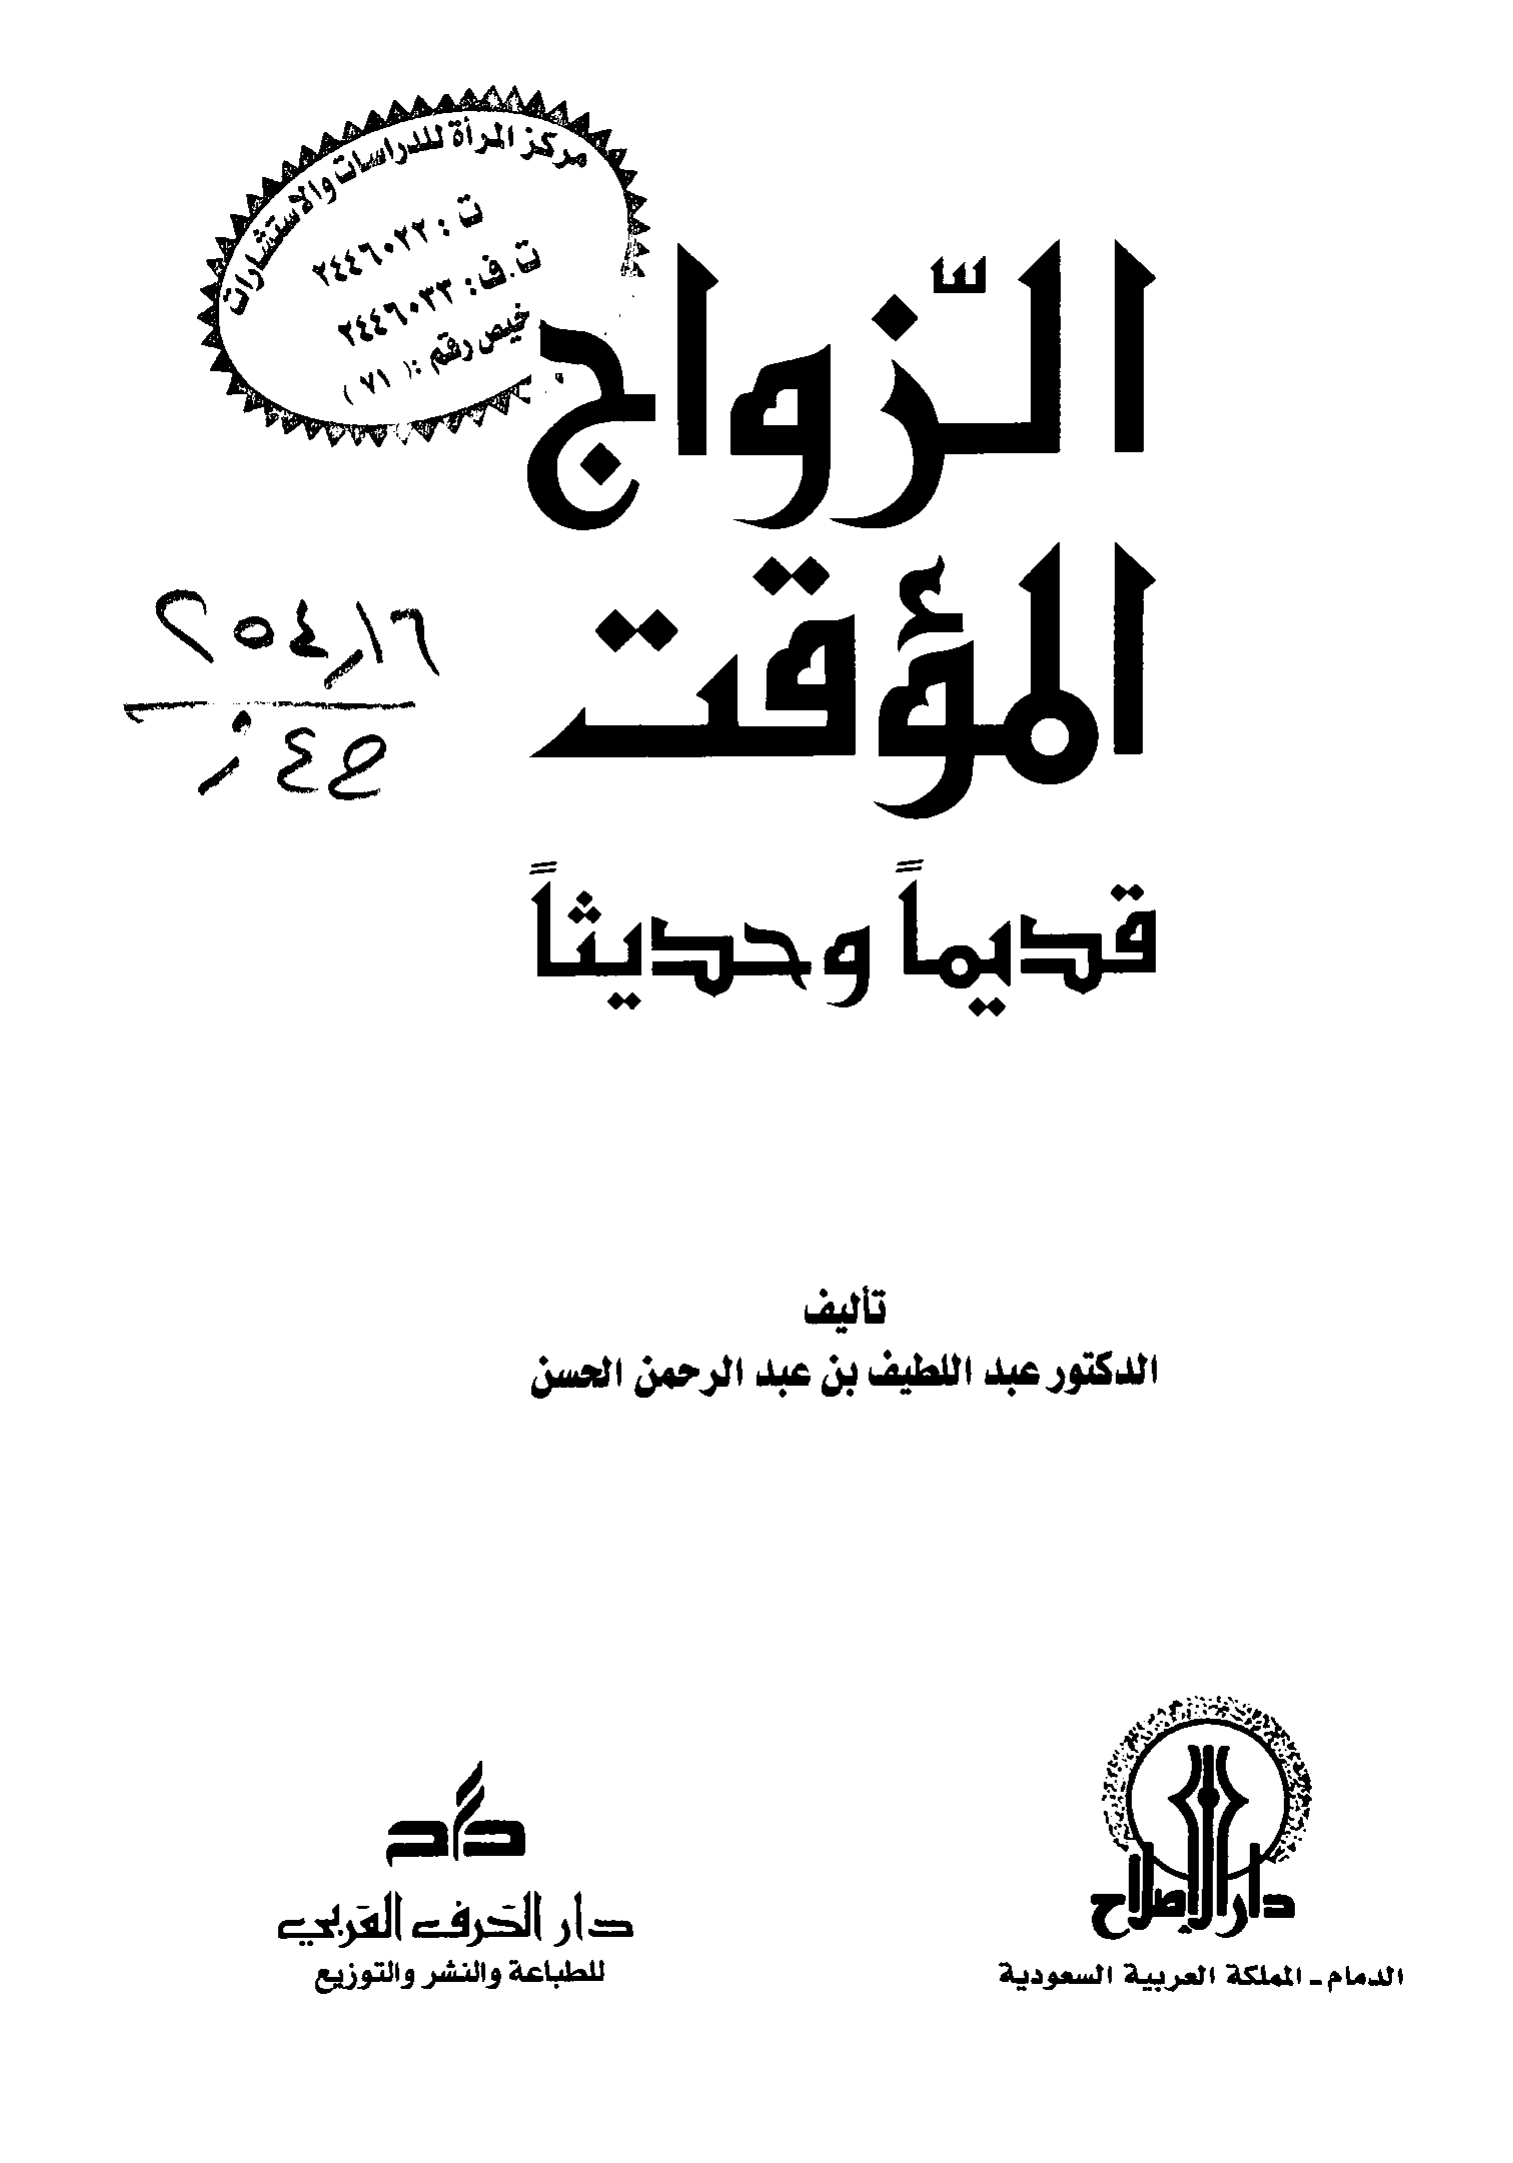 مركز المرأة للدراسات والاستشارات
ت : ٢٤٤٦٠٢٢
ت . ف : ٢٤٤٦٠٣٣
خيص رقم : ( ٧١ )
الزّواج
المؤقت
قديماً وحديثاً
تأليف
الدكتور عبد اللطيف بن عبد الرحمن الحسن
دار الإصلاح
الدمام - المملكة العربية السعودية
دار الحرف العربي
للطباعة والنشر والتوزيع